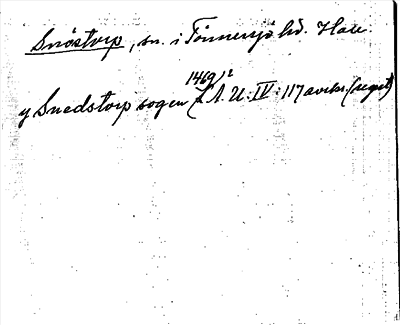 Snöstorp, sn. i Tönnersjö hd. Hall.
1469/2
y Snedstorp sogen ÆA. U: IV: 117 avskr. (regest)